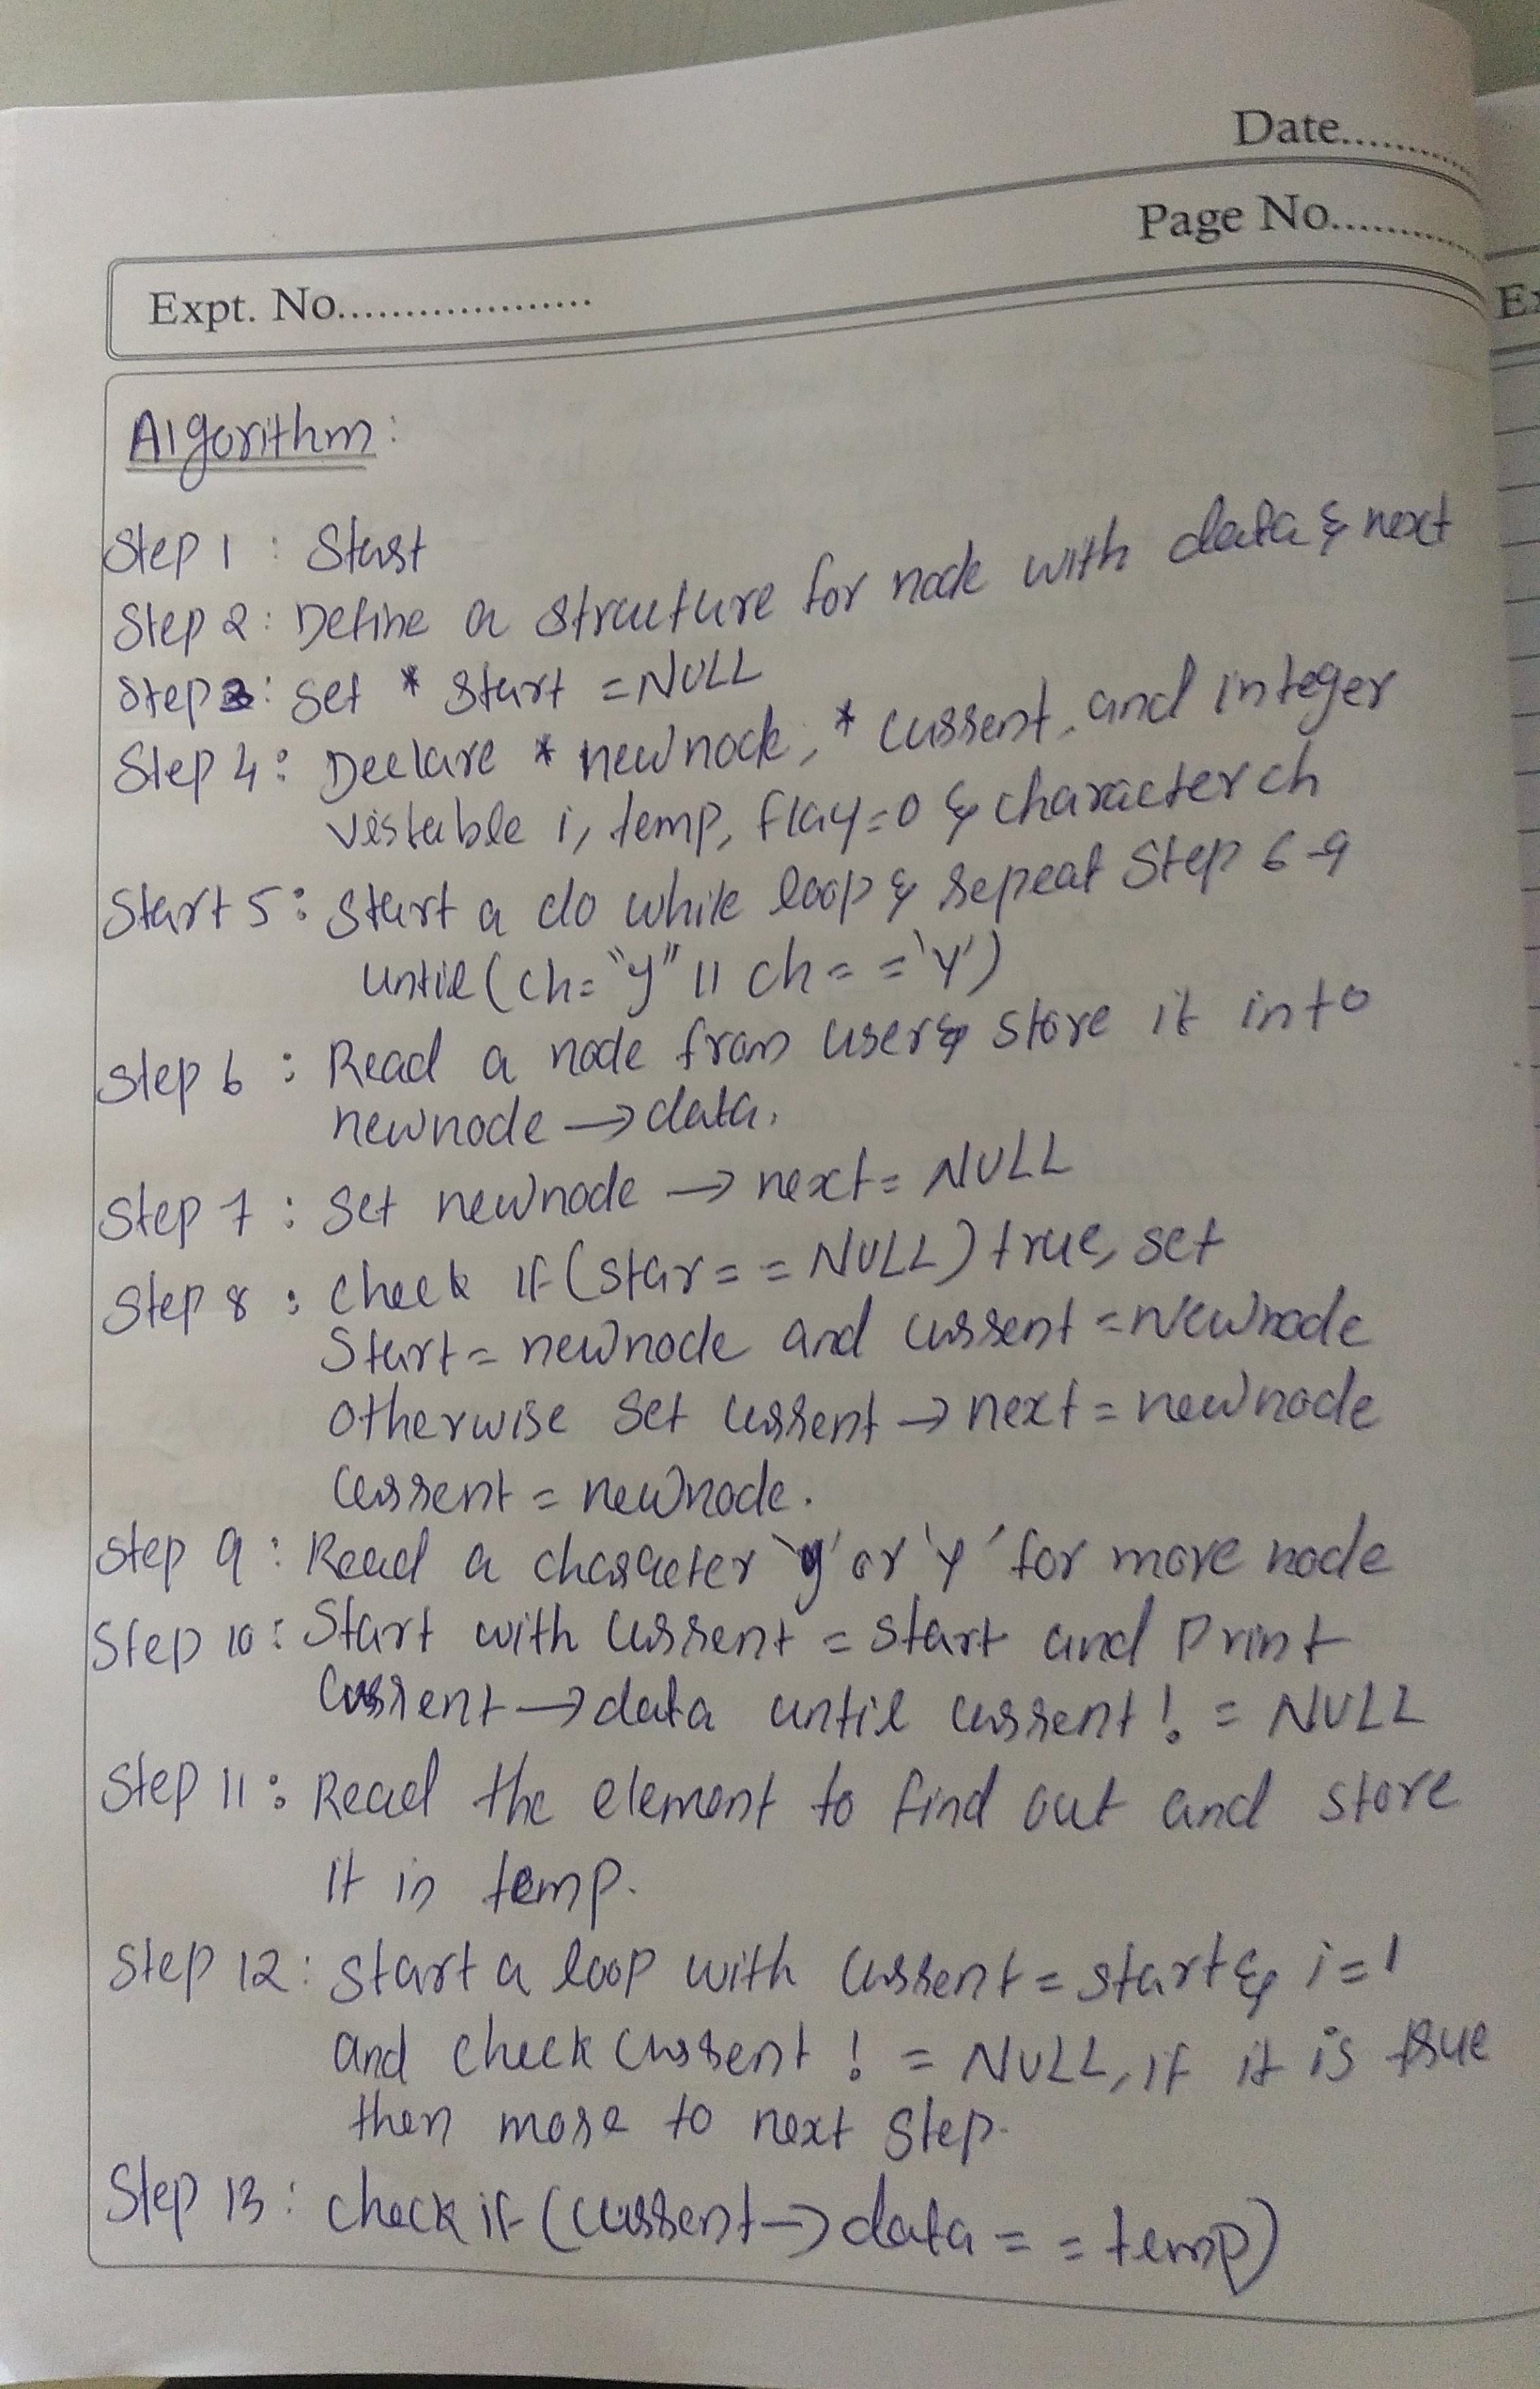 Date..........
Page No..........
Expt. No...................
Ex
Algorithm:
Step 1 : Start
Step 2 : Define a structure for node with data & next
Step 3 : set * start = NULL
Step 4 : Declare * newnode, * current, and integer
variable i, temp, flag=0 & character ch
Start 5 : Start a do while loop & repeat Step 6-9
until (ch="y" || ch = ='Y')
Step 6 : Read a node from user & store it into
newnode → data.
Step 7 : Set newnode → next = NULL
Step 8 : check if (star = = NULL) true, set
Start = newnode and current = Newnode
otherwise set current → next = newnode
current = newnode.
Step 9 : Read a character 'y' or 'Y' for more node
Step 10 : Start with current = start and Print
current → data until current ! = NULL
Step 11 : Read the element to find out and store
it in temp.
Step 12 : start a loop with current = start & i=1
and check current ! = NULL, if it is true
then move to next step.
Step 13 : check if (current → data = = temp)